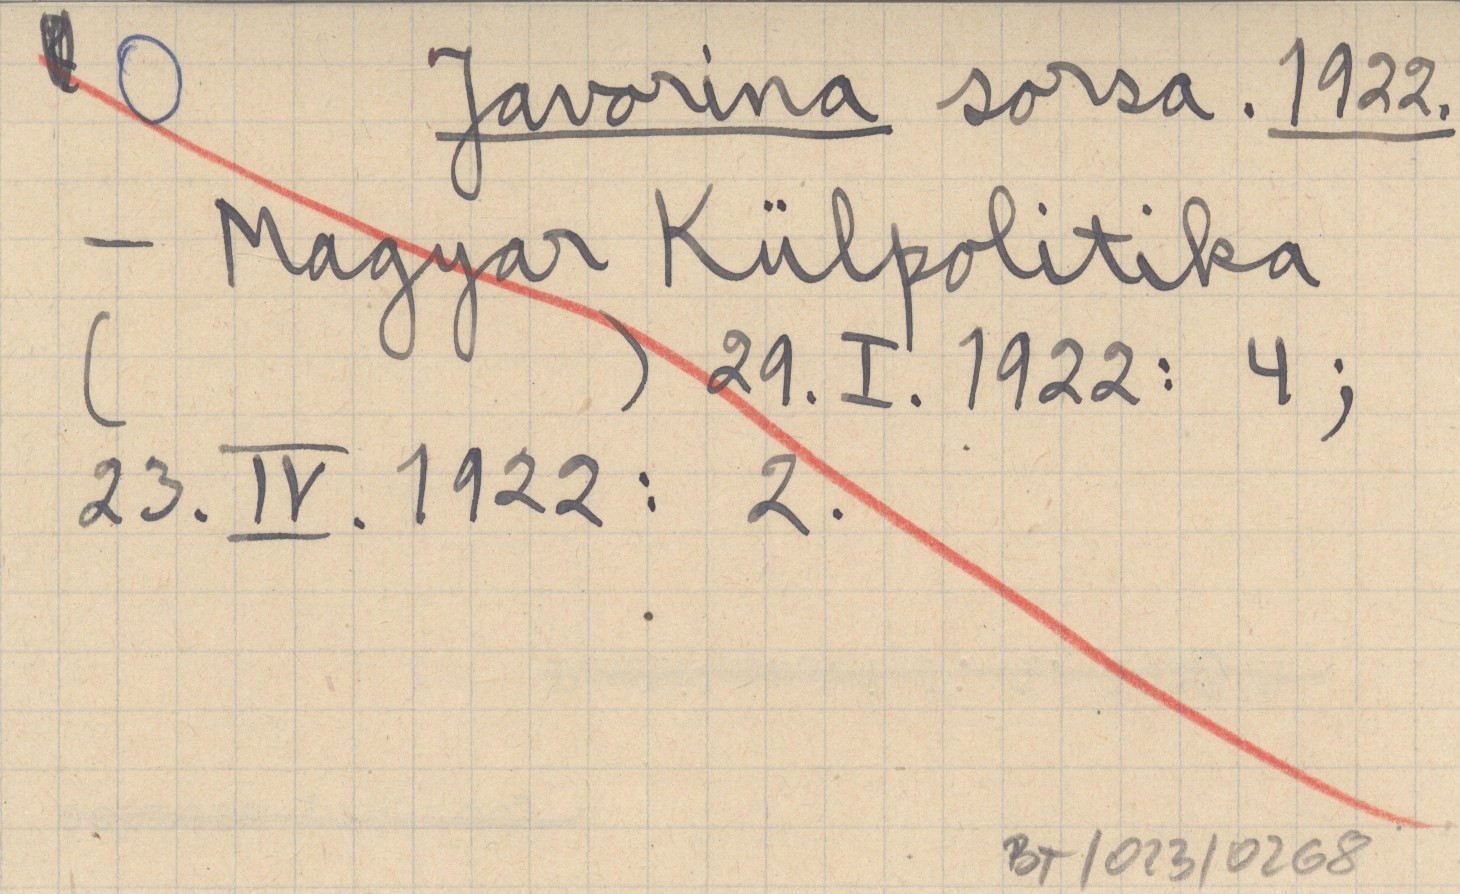 Javorina sorsa. 1922.
— Magyar Külpolitika
( ) 29. I. 1922: 4;
23. IV. 1922: 2.
BT/023/0268